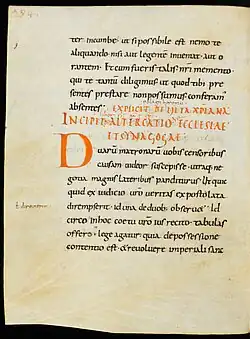 ter incumbe ut si possibile est nemo te
aliquando nisi aut legente inueniat aut o
rantem · Et cum fueris talis mei memento
qui te tantu diligimus ut quod tibi pre
sentes prestare non possumus conferam
absentes · EXPLICIT DE VITA XPIANA
INCIPIT ALTERCATIO ECCLESIAE
ET SYNAGOGAE
Duarū matronarū uobis censoribus
causam audeo suscepisse utrarūq ne
gotia magnis lateribus panditur Ut quic
quid ex iudicio urō ueritas expostolata
dirempserit id una de duob; obseruet · Id
circo in hoc coetu urō iuris recito tabulas
offero · lege agatur quia de possessione
contentio est & reuoluere imperiali sanc